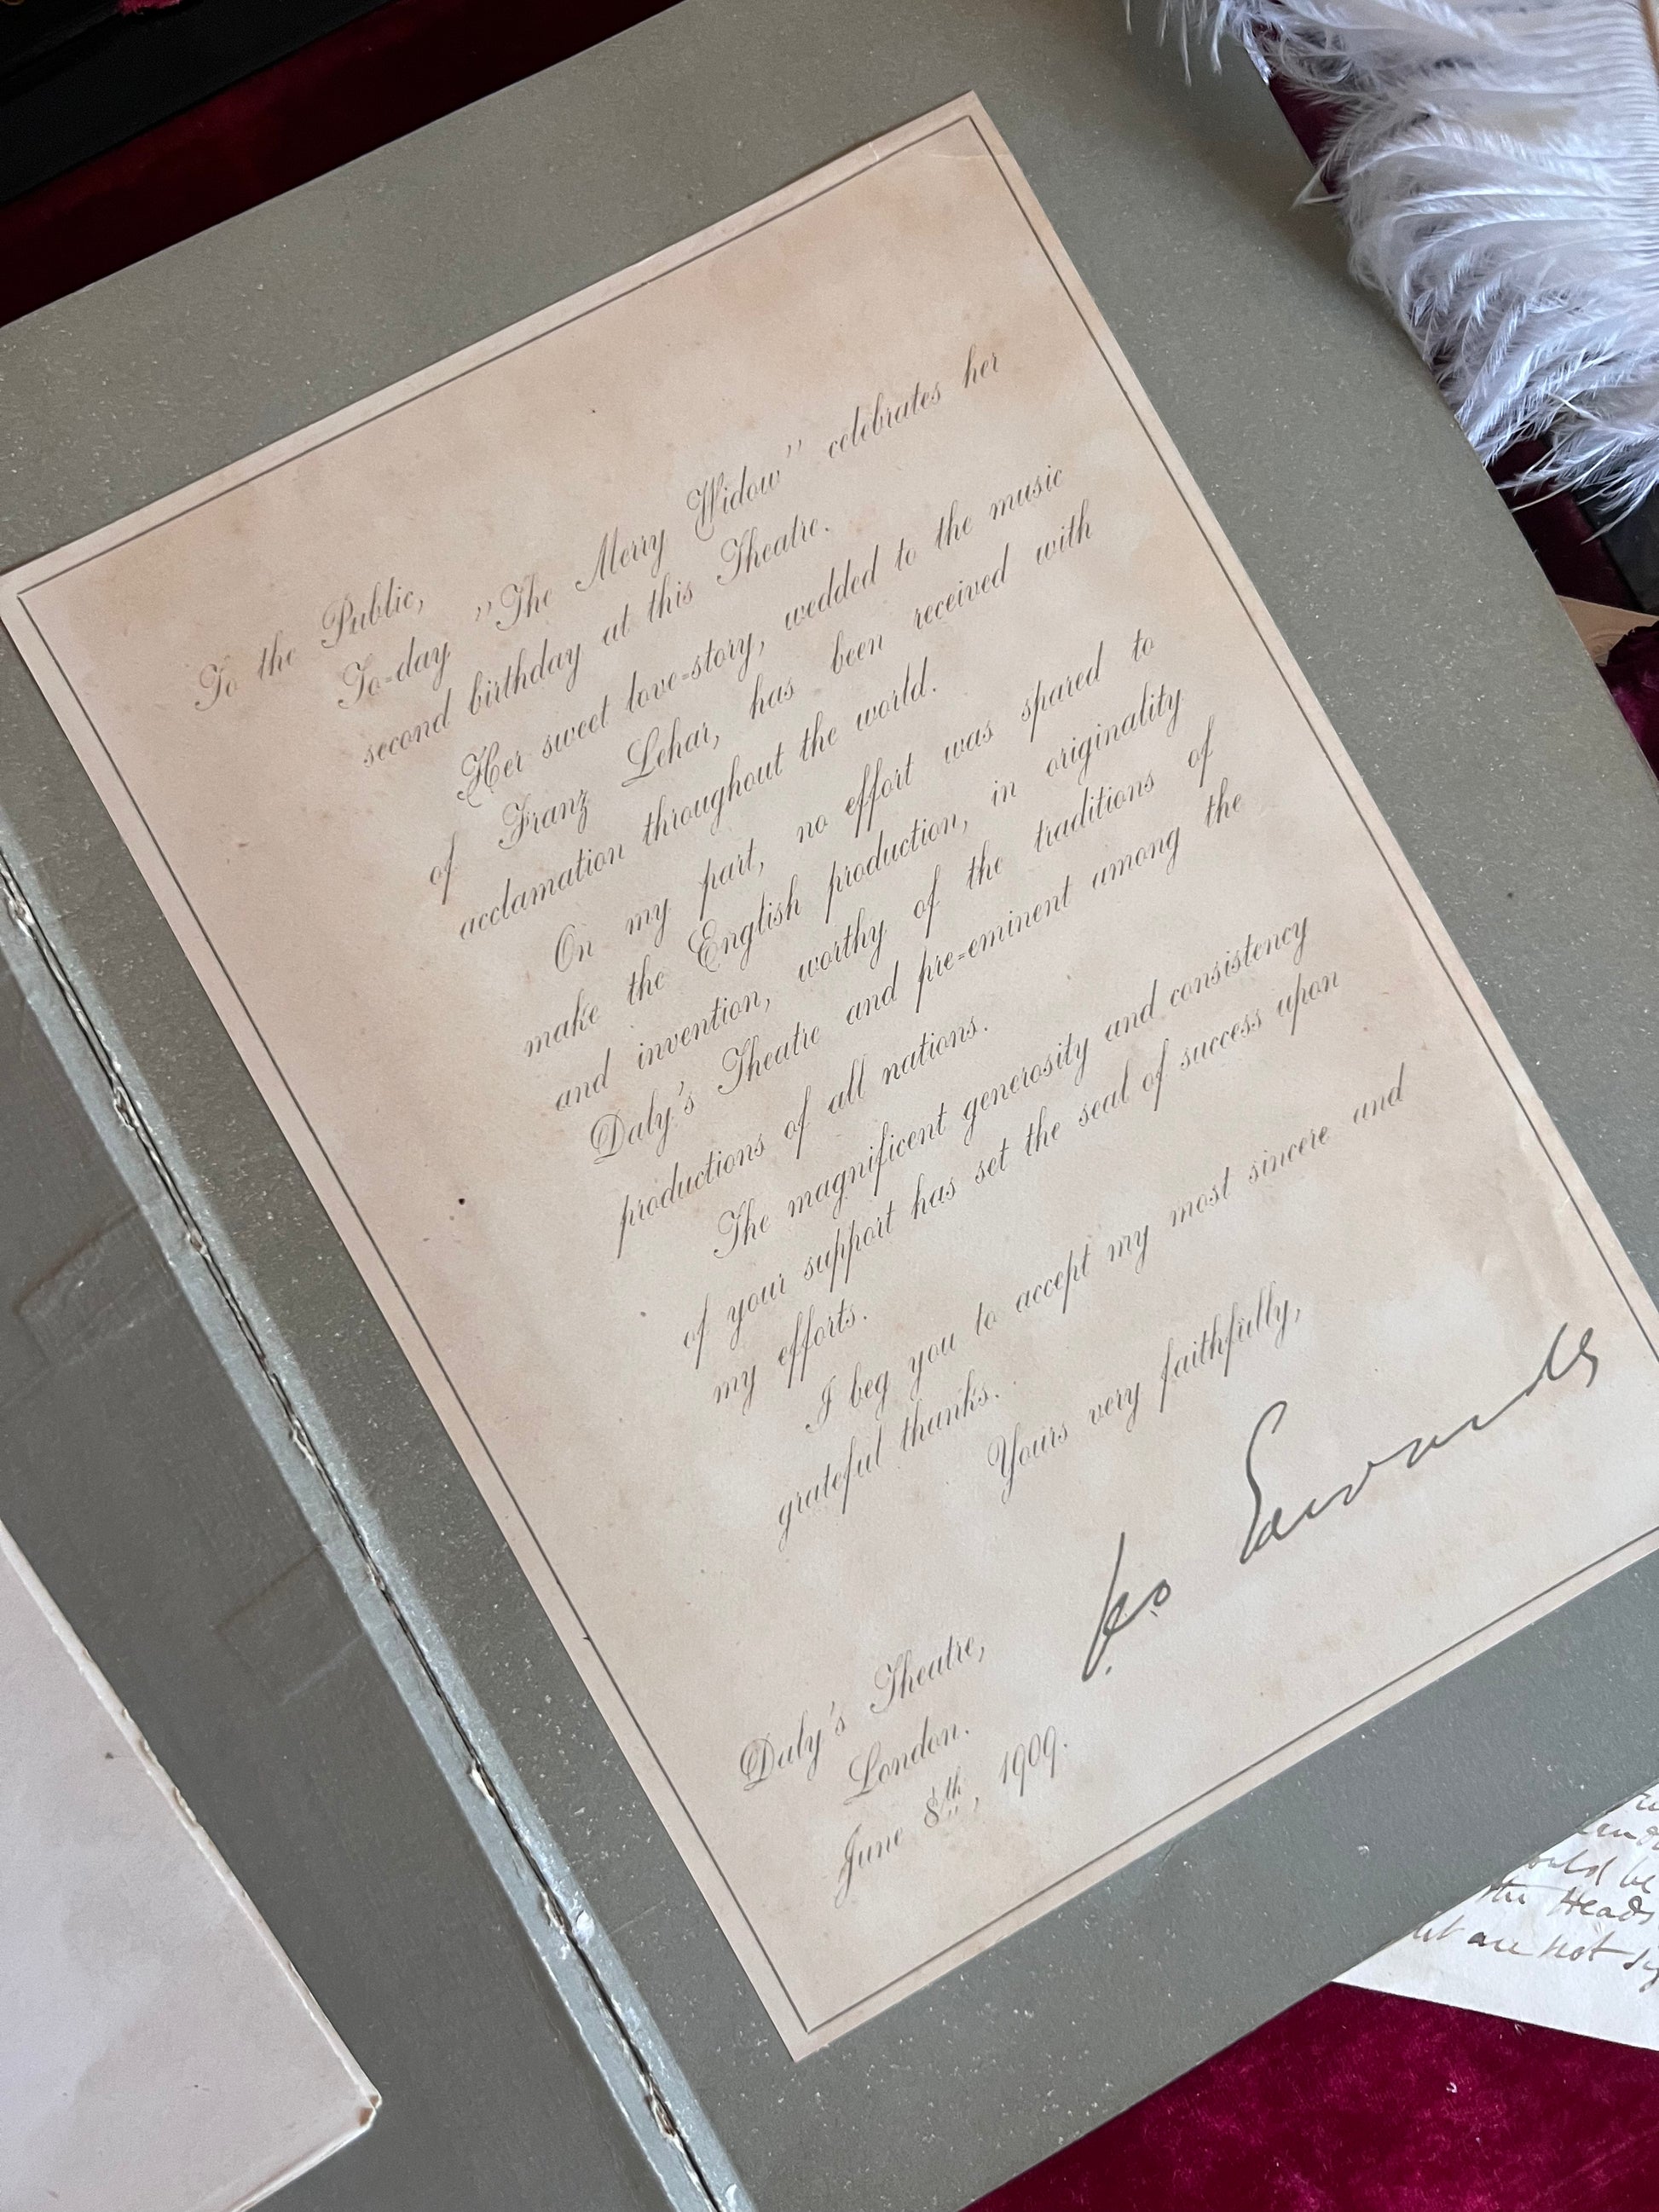 To the Public,
To-day „The Merry Widow” celebrates her
second birthday at this Theatre.
Her sweet love-story, wedded to the music
of Franz Lehar, has been received with
acclamation throughout the world.
On my part, no effort was spared to
make the English production, in originality
and invention, worthy of the traditions of
Daly's Theatre and pre-eminent among the
productions of all nations.
The magnificent generosity and consistency
of your support has set the seal of success upon
my efforts.
I beg you to accept my most sincere and
grateful thanks.
Yours very faithfully,
Geo Edwardes
Daly's Theatre,
London.
June 8th, 1909.
be
Heads
are not